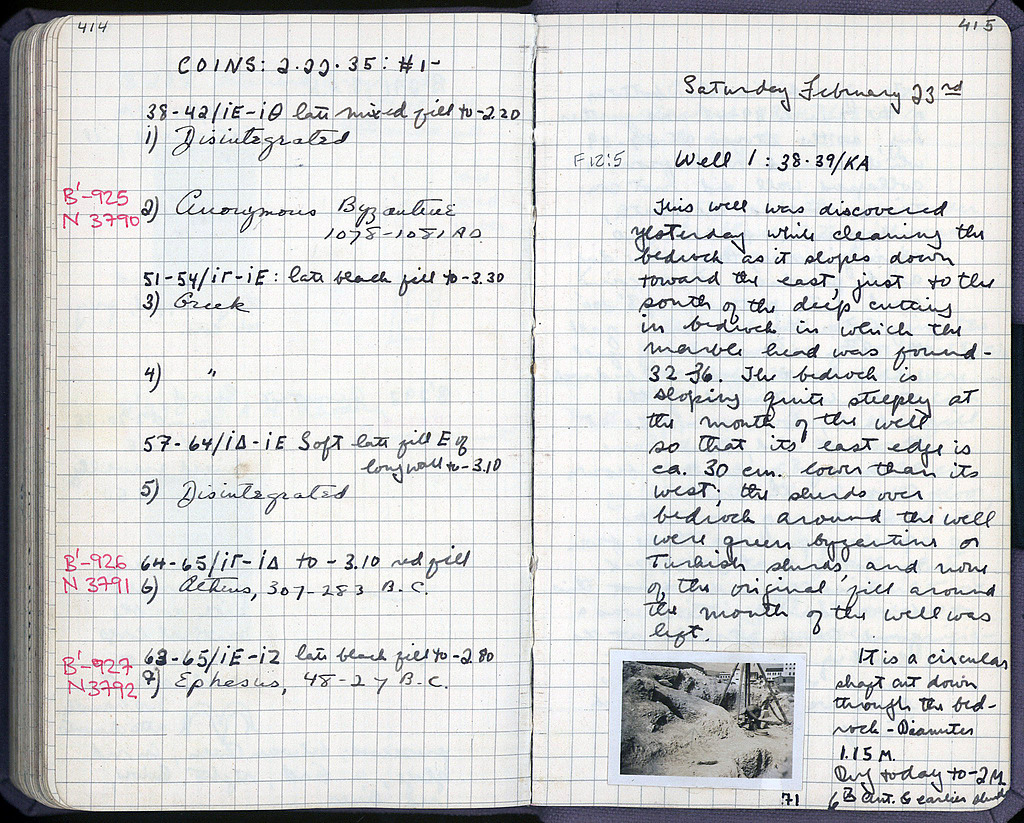 414
COINS: 2.22.35: #1-
38-42/ΙΕ-ΙΘ late mixed fill to -2.20
1) Disintegrated
B'-925
N 3790
2) Anonymous Byzantine
1078-1081 AD
51-54/ΙΓ-ΙΕ: late black fill to -3.30
3) Greek
4) "
57-64/ΙΔ-ΙΕ Soft late fill E of
long wall to -3.10
5) Disintegrated
B'-926
N 3791
64-65/ΙΓ-ΙΔ to -3.10 red fill
6) Athens, 307-283 B.C.
B'-927
N 3792
63-65/ΙΕ-ΙΖ late black fill to -2.80
7) Ephesus, 48-27 B.C.
415
Saturday February 23rd
F 12:5
Well 1 : 38-39/KA
This well was discovered
yesterday while cleaning the
bedrock as it slopes down
toward the east, just to the
south of the deep cutting
in bedrock in which the
marble head was found -
32-36. The bedrock is
sloping quite steeply at
the mouth of the well
so that its east edge is
ca. 30 cm. lower than its
west; the sherds over
bedrock around the well
were green byzantine or
Turkish sherds, and none
of the original fill around
the mouth of the well was
left.
It is a circular
shaft cut down
through the bed-
rock - Diameter
1.15 M.
Dug today to -2 M
71
6th Cent. & earlier sherds